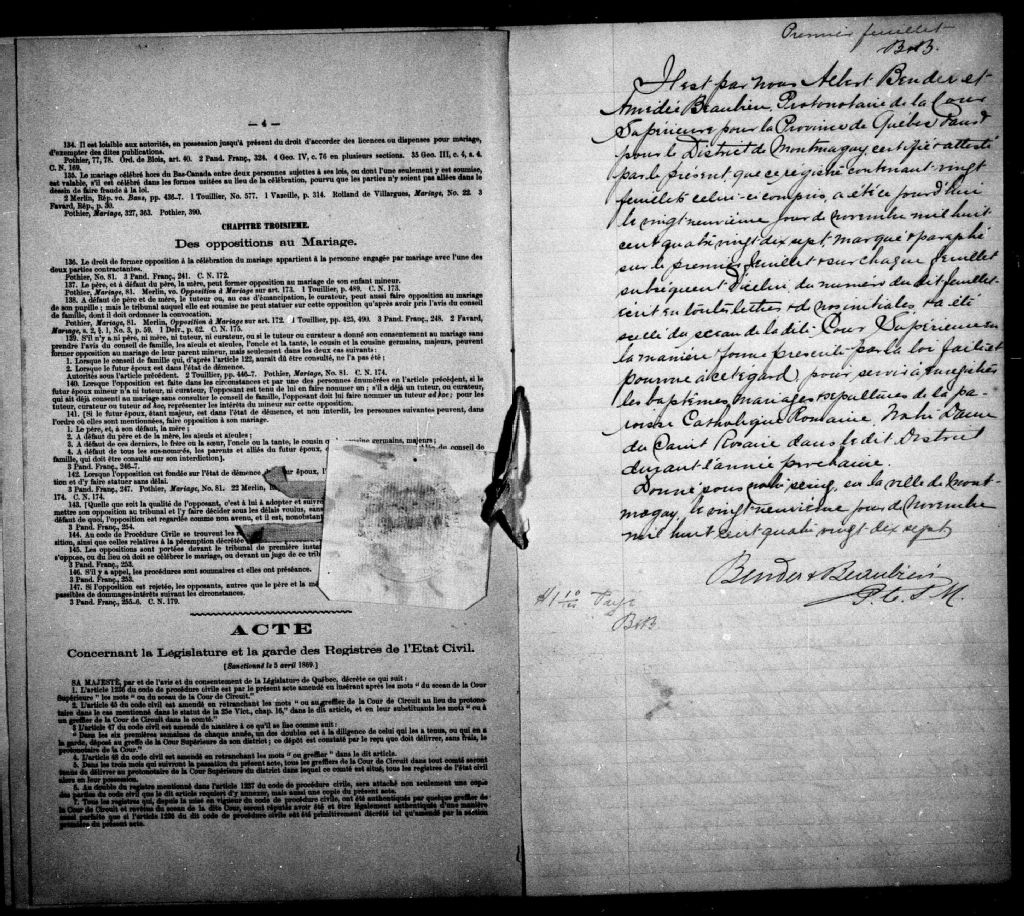 — 4 —
134. Il est loisible aux autorités, en possession jusqu'à présent du droit d'accorder des licences ou dispenses pour mariage,
d'exempter des dites publications.
Pothier, 77, 78. Ord. de Blois, art. 40. 2 Pand. Franç., 324. 4 Geo. IV, c. 76 en plusieurs sections. 35 Geo. III, c. 4, s. 4.
C. N. 169.
135. Le mariage célébré hors du Bas-Canada entre deux personnes sujettes à ses lois, ou dont l'une seulement y est soumise,
est valable, s'il est célébré dans les formes usitées au lieu de la célébration, pourvu que les parties n'y soient pas allées dans le
dessin de faire fraude à la loi.
2 Merlin, Rép. vo. Bans, pp. 436-7. 1 Touillier, No. 577. 1 Vazeille, p. 314. Rolland de Villargues, Mariage, No. 22. 3
Favard, Rép., p. 30.
Pothier, Mariage, 327, 363. Pothier, 390.
CHAPITRE TROISIEME.
Des oppositions au Mariage.
136. Le droit de former opposition à la célébration du mariage appartient à la personne engagée par mariage avec l'une des
deux parties contractantes.
Pothier, No. 81. 3 Pand. Franç., 241. C. N. 172.
137. Le père, et à défaut du père, la mère, peut former opposition au mariage de son enfant mineur.
Pothier, Mariage, 81. Merlin, vo. Opposition à Mariage sur art. 173. 1 Touillier, p. 489. C. N. 173.
138. A défaut de père et de mère, le tuteur ou, au cas d'émancipation, le curateur, peut aussi faire opposition au mariage
de son pupille; mais le tribunal auquel elle est soumise ne peut statuer sur cette opposition qu'après avoir pris l'avis du conseil
de famille, dont il doit ordonner la convocation.
Pothier, Mariage, 81. Merlin, Opposition à Mariage sur art. 172. 1 Touillier, pp. 425, 490. 3 Pand. Franç., 248. 2 Favard,
Mariage, s. 2, § 1, No. 3, p. 59. 1 Delv., p. 62. C. N. 175.
139. S'il n'y a ni père, ni mère, ni tuteur, ni curateur, ou si le tuteur ou curateur a donné son consentement au mariage sans
prendre l'avis du conseil de famille, les aïeuls et aïeules, l'oncle et la tante, le cousin et la cousine germains, majeurs, peuvent
former opposition au mariage de leur parent mineur, mais seulement dans les deux cas suivants:
1. Lorsque le conseil de famille qui, d'après l'article 122, aurait dû être consulté, ne l'a pas été;
2. Lorsque le futur époux est dans l'état de démence.
Autorités sous l'article précédent. 2 Touillier, pp. 446-7. Pothier, Mariage, No. 81. C. N. 174.
140. Lorsque l'opposition est faite dans les circonstances et par une des personnes énumérées en l'article précédent, si le
futur époux mineur n'a ni tuteur, ni curateur, l'opposant est tenu de lui en faire nommer un; s'il a déjà un tuteur, ou curateur,
qui ait déjà consenti au mariage sans consulter le conseil de famille, l'opposant doit lui faire nommer un tuteur ad hoc; pour les
tuteur, curateur ou tuteur ad hoc, représenter les intérêts du mineur sur cette opposition.
141. [Si le futur époux, étant majeur, est dans l'état de démence, et non interdit, les personnes suivantes peuvent, dans
l'ordre où elles sont mentionnées, faire opposition à son mariage.
1. Le père, et, à son défaut, la mère;
2. A défaut du père et de la mère, les aïeuls et aïeules;
3. A défaut de ces derniers, le frère ou la sœur, l'oncle ou la tante, le cousin ou cousine germains, majeurs;
4. A défaut de tous les sus-nommés, les parents et alliés du futur époux, conseil de
famille, qui doit être consulté sur son interdiction].
3 Pand. Franç., 246-7.
142. Lorsque l'opposition est fondée sur l'état de démence ur époux, l'
tion et d'y faire statuer sans délai.
3 Pand. Franç., 247. Pothier, Mariage, No. 81. 22 Merlin,
174. C. N. 174.
143. [Quelle que soit la qualité de l'opposant, c'est à lui à adopter et suivre
mettre son opposition au tribunal et l'y faire décider sous les délais voulus, sans
défaut de quoi, l'opposition est regardée comme non avenue, et il est, nonobstant
3 Pand. Franç., 254.
144. Au code de Procédure Civile se trouvent les
sition, ainsi que celles relatives à la péremption décrétée
145. Les oppositions sont portées devant le tribunal de première insta
s'oppose, ou du lieu où doit se célébrer le mariage, ou devant un juge de ce trib
3 Pand. Franç., 253.
146. S'il y a appel, les procédures sont sommaires et elles ont préséance.
3 Pand. Franç., 253.
147. Si l'opposition est rejetée, les opposants, autres que le père et la m
passibles de dommages-intérêts suivant les circonstances.
3 Pand. Franç., 255-6. C. N. 179.
ACTE
Concernant la Législature et la garde des Registres de l'Etat Civil.
[Sanctionné le 5 avril 1869.]
SA MAJESTÉ, par et de l'avis et du consentement de la Législature de Québec, décrète ce qui suit:
1. L'article 1236 du code de procédure civile est par le présent acte amendé en insérant après les mots "du sceau de la Cour
Supérieure" les mots "ou du sceau de la Cour de Circuit."
2. L'article 45 du code civil est amendé en retranchant les mots "ou au greffier de la Cour de Circuit au lieu du protono-
taire dans le cas mentionné dans le statut de la 25e Vict., chap. 16," dans le dit article, et en leur substituant les mots "ou à
un greffier de la Cour de Circuit dans le comté."
3 L'article 47 du code civil est amendé de manière à ce qu'il se lise comme suit:
"Dans les six premières semaines de chaque année, un des doubles est à la diligence de celui qui les a tenus, ou qui en a
la garde, déposé au greffe de la Cour Supérieure de son district; ce dépôt est constaté par le reçu que doit délivrer, sans frais, le
protonotaire de la Cour."
4. L'article 48 du code civil est amendé en retranchant les mots "ou greffier" dans le dit article.
5. Dans les trois mois qui suivront la passation du présent acte, tous les greffiers de Circuit dans tout comté seront
tenus de délivrer au protonotaire de la Cour Supérieure du district dans lequel ce comté est situé, tous les registres de l'état civil
alors en leur possession.
6. Au double du registre mentionné dans l'article 1237 du code de procédure civile, sera attaché non seulement une copie
des parties du code civil que le dit article requiert d'y annexer, mais aussi une copie du présent acte.
7. Tous les registres qui, depuis la mise en vigueur du code de procédure civile, ont été authentiqués par quelque greffier de
la Cour de Circuit et revêtus du sceau de la dite Cour, seront réputés avoir été et être légalement authentiqués d'une manière
aussi parfaite que si l'article 1236 du dit code de procédure civile eût été primitivement décrété tel qu'amendé par la section
première du présent acte.
Premier feuillet
B&B.
Il est par nous Albert Bender et
Amédée Beaubien, Protonotaire de la Cour
Supérieure pour la Province de Québec dans &
pour le District de Montmagny, certifié & attesté
par le présent, que ce registre contenant vingt
feuillets celui-ci compris, a été ce jour d'hui
le vingt neuvième jour de novembre mil huit
cent quatre vingt dix sept, marqué & paraphé
sur le premier feuillet & sur chaque feuillet
subséquent d'icelui, du numéro du dit feuillet
écrit en toutes lettres & de nos initiales & a été
scellé du sceau de la dite Cour Supérieure en
la manière & forme prescrite par la loi faite et
pourvue à cet égard, pour servir à enregistrer
les baptêmes, mariages & sépultures de la pa-
roisse Catholique Romaine Notre Dame
du Saint Rosaire dans le dit District
durant l'année prochaine.
Donné sous notre seing, en la ville de Mont-
magny, le vingt-neuvième jour de novembre
mil huit cent quatre vingt dix sept
Bender & Beaubien
P. C. S. M.
$1 10/100 Payé
B&B